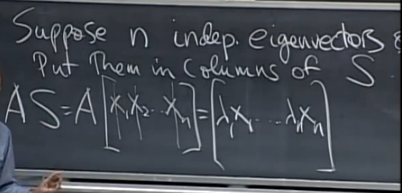 Suppose n indep. eigenvectors
Put them in columns of S
AS = A [x₁ x₂ ... xₙ] = [λ₁x₁ ... λₙxₙ]